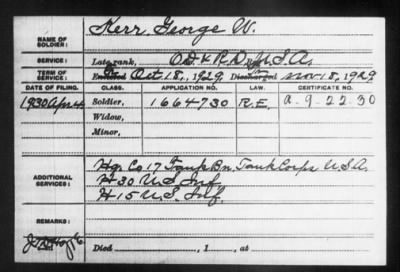 NAME OF SOLDIER: Kerr, George W.
SERVICE: Late rank, O D & R D, U.S.A.
TERM OF SERVICE Enlisted Oct. 18, 1929, Discharged Nov. 18, 1929
DATE OF FILING. CLASS. APPLICATION NO. LAW. CERTIFICATE NO.
1930 Apr 4 Soldier, 1664730 R.E. a-9-22-30
Widow,
Minor,
ADDITIONAL SERVICES: Hq. Co 17 Tank Bn. Tank Corps U.S.A.
H 30 U.S. Inf
H 15 U.S. Inf.
REMARKS:
Died , 1 , at